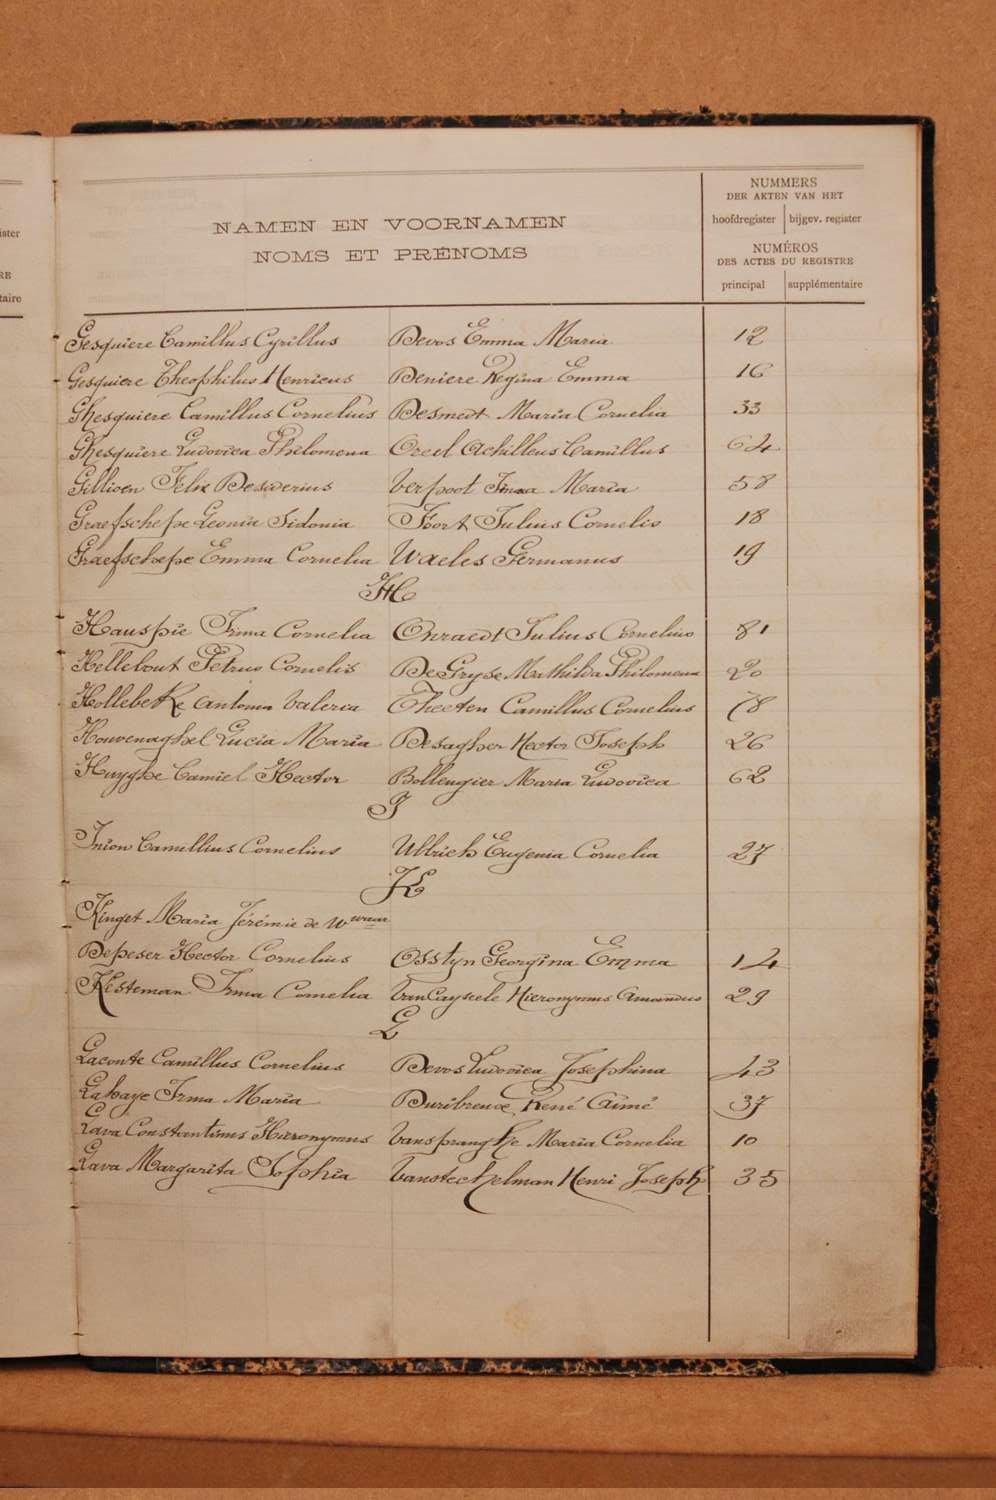 ister
RE
taire
NAMEN EN VOORNAMEN
NOMS ET PRÉNOMS
NUMMERS
DER AKTEN VAN HET
hoofdregister bijgev. register
NUMÉROS
DES ACTES DU REGISTRE
principal supplémentaire
Gesquiere Camillus Cyrillus Devos Emma Maria 12
Gesquiere Theophilus Henricus Deniere Regina Emma 16
Ghesquiere Camillus Cornelius Desmedt Maria Cornelia 33
Ghesquiere Ludovica Philomena Oreel Achilleus Camillus 64
Gillioen Felix Desiderius Verpoot Irma Maria 58
Graefschepe Leonia Sidonia Foort Julius Cornelis 18
Graefschepe Emma Cornelia Waeles Germanus 19
H
Hauspie Irma Cornelia Onraedt Julius Cornelius 81
Hellebout Petrus Cornelis DeGryse Mathilda Philomena 20
Hollebeke Antonia Valeria Theeten Camillus Cornelius 78
Houvenaghel Lucia Maria Desagher Hector Joseph 26
Huyghe Camiel Hector Bollengier Maria Ludovica 62
I
Inion Camillius Cornelius Ullrich Eugenia Cornelia 27
K
Kinget Maria Jérémie de Wwe van
Depeser Hector Cornelius Osstyn Georgina Emma 14
Kesteman Irma Cornelia VanCayseele Hieronymus Amandus 29
L
Laconte Camillus Cornelius Devos Ludovica Josephina 43
Lahaye Irma Maria Duribreux René Aimé 37
Lava Constantinus Hieronymus Vanspranghe Maria Cornelia 10
Lava Margarita Sophia Vansteckelman Henri Joseph 35